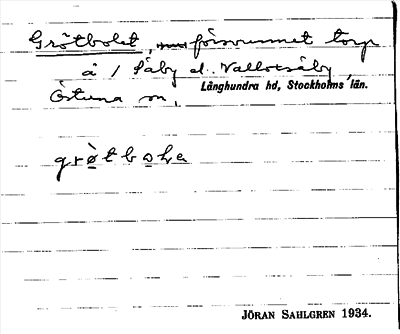 Grötbolet, försvunnet torp
å 1 Såby el. Vallbesåby
Östuna sn,
Långhundra hd, Stockholms län.
grö̀tbo̱la
JÖRAN SAHLGREN 1934.